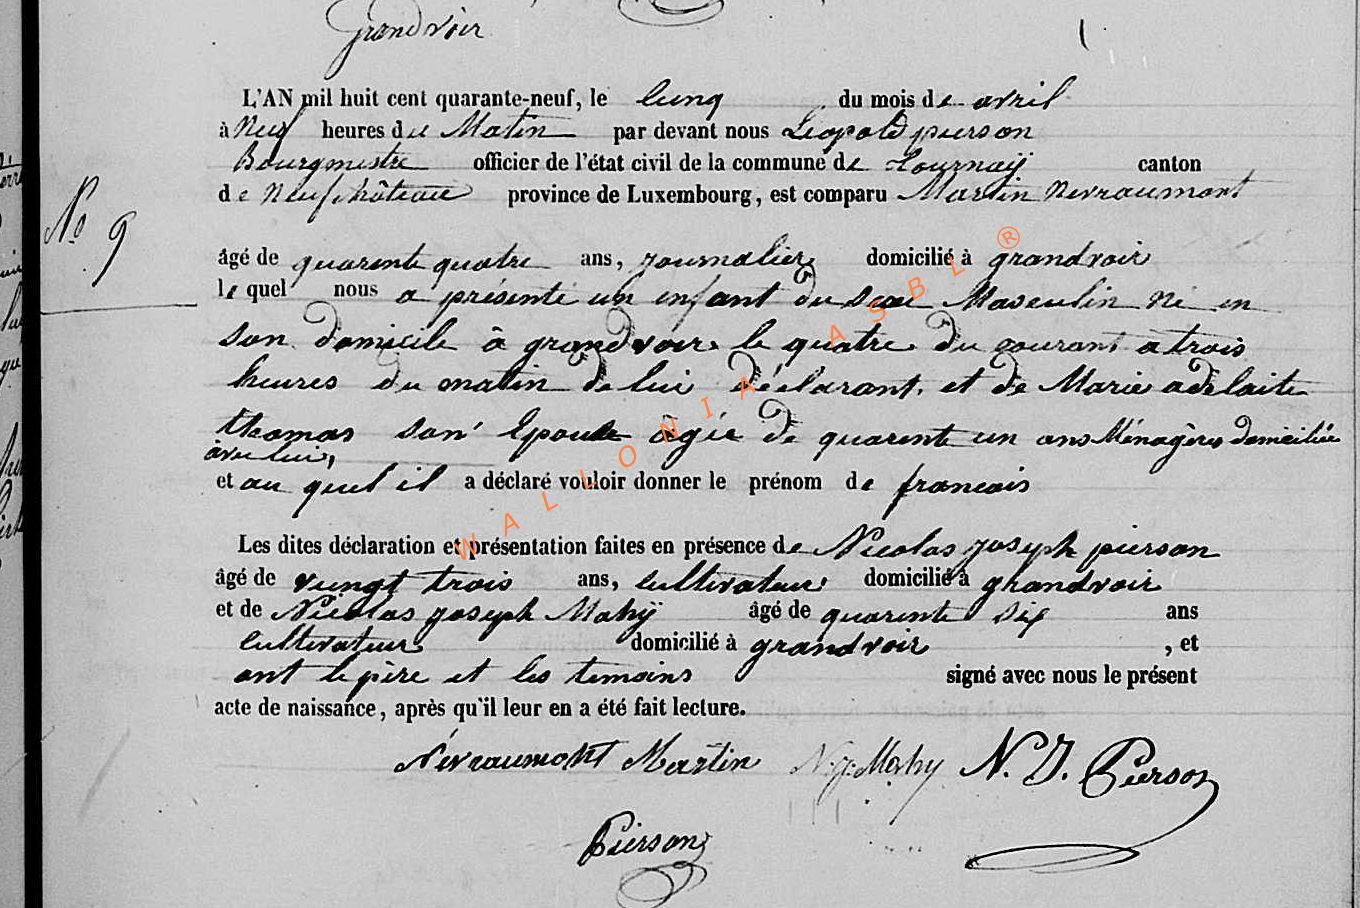 Grandvoir
L'AN mil huit cent quarante-neuf, le cinq du mois de avril
à Neuf heures du Matin par devant nous Léopold pierson
Bourgmestre officier de l'état civil de la commune de Tournaÿ canton
de Neufchâteau province de Luxembourg, est comparu Martin Nevraumont
No 9
âgé de quarente quatre ans, journalier domicilié à grandvoir
le quel nous a présenté un enfant du sexe Masculin né en
son domicile à grandvoir le quatre du courant à trois
heures du matin de lui déclarant, et de Marie adelaite
thomas son Epouse âgée de quarente un ans Ménagère domiciliée
avec lui,
et au quel il a déclaré vouloir donner le prénom de francois
Les dites déclaration et présentation faites en présence de Nicolas joseph pierson
âgé de vingt trois ans, cultivateur domicilié à grandvoir
et de Nicolas joseph Mahÿ âgé de quarente six ans
cultivateur domicilié à grandvoir , et
ont le père et les temoins signé avec nous le présent
acte de naissance, après qu'il leur en a été fait lecture.
Névraumont Martin N. J. Mahy N. J. Pierson
Pierson
WALLONIA ASBL ®